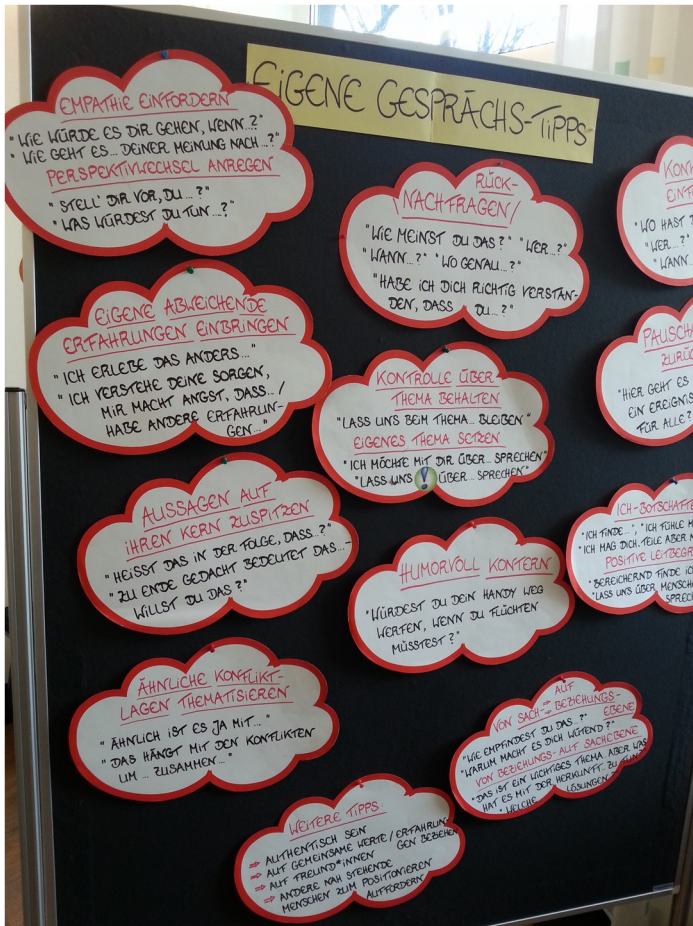 EIGENE GESPRÄCHS-TIPPS
EMPATHIE EINFORDERN
"WIE WÜRDE ES DIR GEHEN, WENN...?"
"WIE GEHT ES... DEINER MEINUNG NACH...?"
PERSPEKTIVWECHSEL ANREGEN
"STELL' DIR VOR, DU...?"
"WAS WÜRDEST DU TUN...?"
EIGENE ABWEICHENDE
ERFAHRUNGEN EINBRINGEN
"ICH ERLEBE DAS ANDERS..."
"ICH VERSTEHE DEINE SORGEN,
MIR MACHT ANGST, DASS.../
HABE ANDERE ERFAHRUN-
GEN..."
AUSSAGEN AUF
IHREN KERN ZUSPITZEN
"HEISST DAS IN DER FOLGE, DASS...?"
"ZU ENDE GEDACHT BEDEUTET DAS...
WILLST DU DAS?"
ÄHNLICHE KONFLIKT-
LAGEN THEMATISIEREN
"ÄHNLICH IST ES JA MIT..."
"DAS HÄNGT MIT DEN KONFLIKTEN
UM... ZUSAMMEN..."
RÜCK-
NACHFRAGEN/
"WIE MEINST DU DAS?" "WER...?"
"WANN...?" "WO GENAU...?"
"HABE ICH DICH RICHTIG VERSTAN-
DEN, DASS DU...?"
KONTROLLE ÜBER
THEMA BEHALTEN
"LASS UNS BEIM THEMA... BLEIBEN"
EIGENES THEMA SETZEN
"ICH MÖCHTE MIT DIR ÜBER... SPRECHEN"
"LASS UNS ÜBER... SPRECHEN"
HUMORVOLL KONTERN
"WÜRDEST DU DEIN HANDY WEG
WERFEN, WENN DU FLÜCHTEN
MÜSSTEST?"
AUF
VON SACH- BEZIEHUNGS-
EBENE
"WIE EMPFINDEST DU DAS...?"
"WARUM MACHT ES DICH WÜTEND?"
VON BEZIEHUNGS- AUF SACHEBENE
"DAS IST EIN WICHTIGES THEMA ABER WAS
HAT ES MIT DER HERKUNFT... ZU TUN?"
"WELCHE LÖSUNGEN
WEITERE TIPPS:
⇒ AUTHENTISCH SEIN
⇒ AUF GEMEINSAME WERTE/ERFAHRUN
GEN BEZIEHEN
⇒ AUF FREUND*INNEN
⇒ ANDERE NAH STEHENDE
MENSCHEN ZUM POSITIONIEREN
AUFFORDERN
"WO HAST
"WER...?"
"WANN...
PAUSCHA
ZURÜ
"HIER GEHT ES
EIN EREIGNIS
FÜR ALLE?
ICH-BOTSCHAFTE
"ICH FINDE...", "ICH FÜHLE
"ICH MAG DICH, TEILE ABER
POSITIVE LEITBEGR
"BEREICHERND FINDE IC
"LASS UNS ÜBER MENSCH
SPRECH